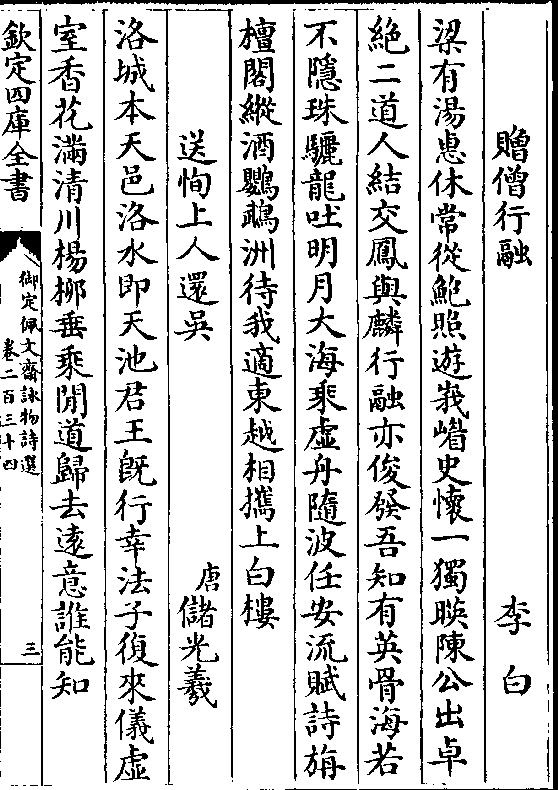 贈僧行融 李白
梁有湯惠休常從鮑照遊峩嵋史懷一獨暎陳公出卓
絶二道人結交鳳與麟行融亦俊發吾知有英骨海若
不隱珠驪龍吐明月大海乘虛舟隨波任安流賦詩旃
檀閣縱酒鸚鵡洲待我適東越相攜上白樓
送恂上人還吳 唐儲光羲
洛城本天邑洛水即天池君王既行幸法子復來儀虛
室香花滿清川楊柳垂乘閒道歸去遠意誰能知
欽定四庫全書
御定佩文齋詠物詩選
卷二百三十四
三